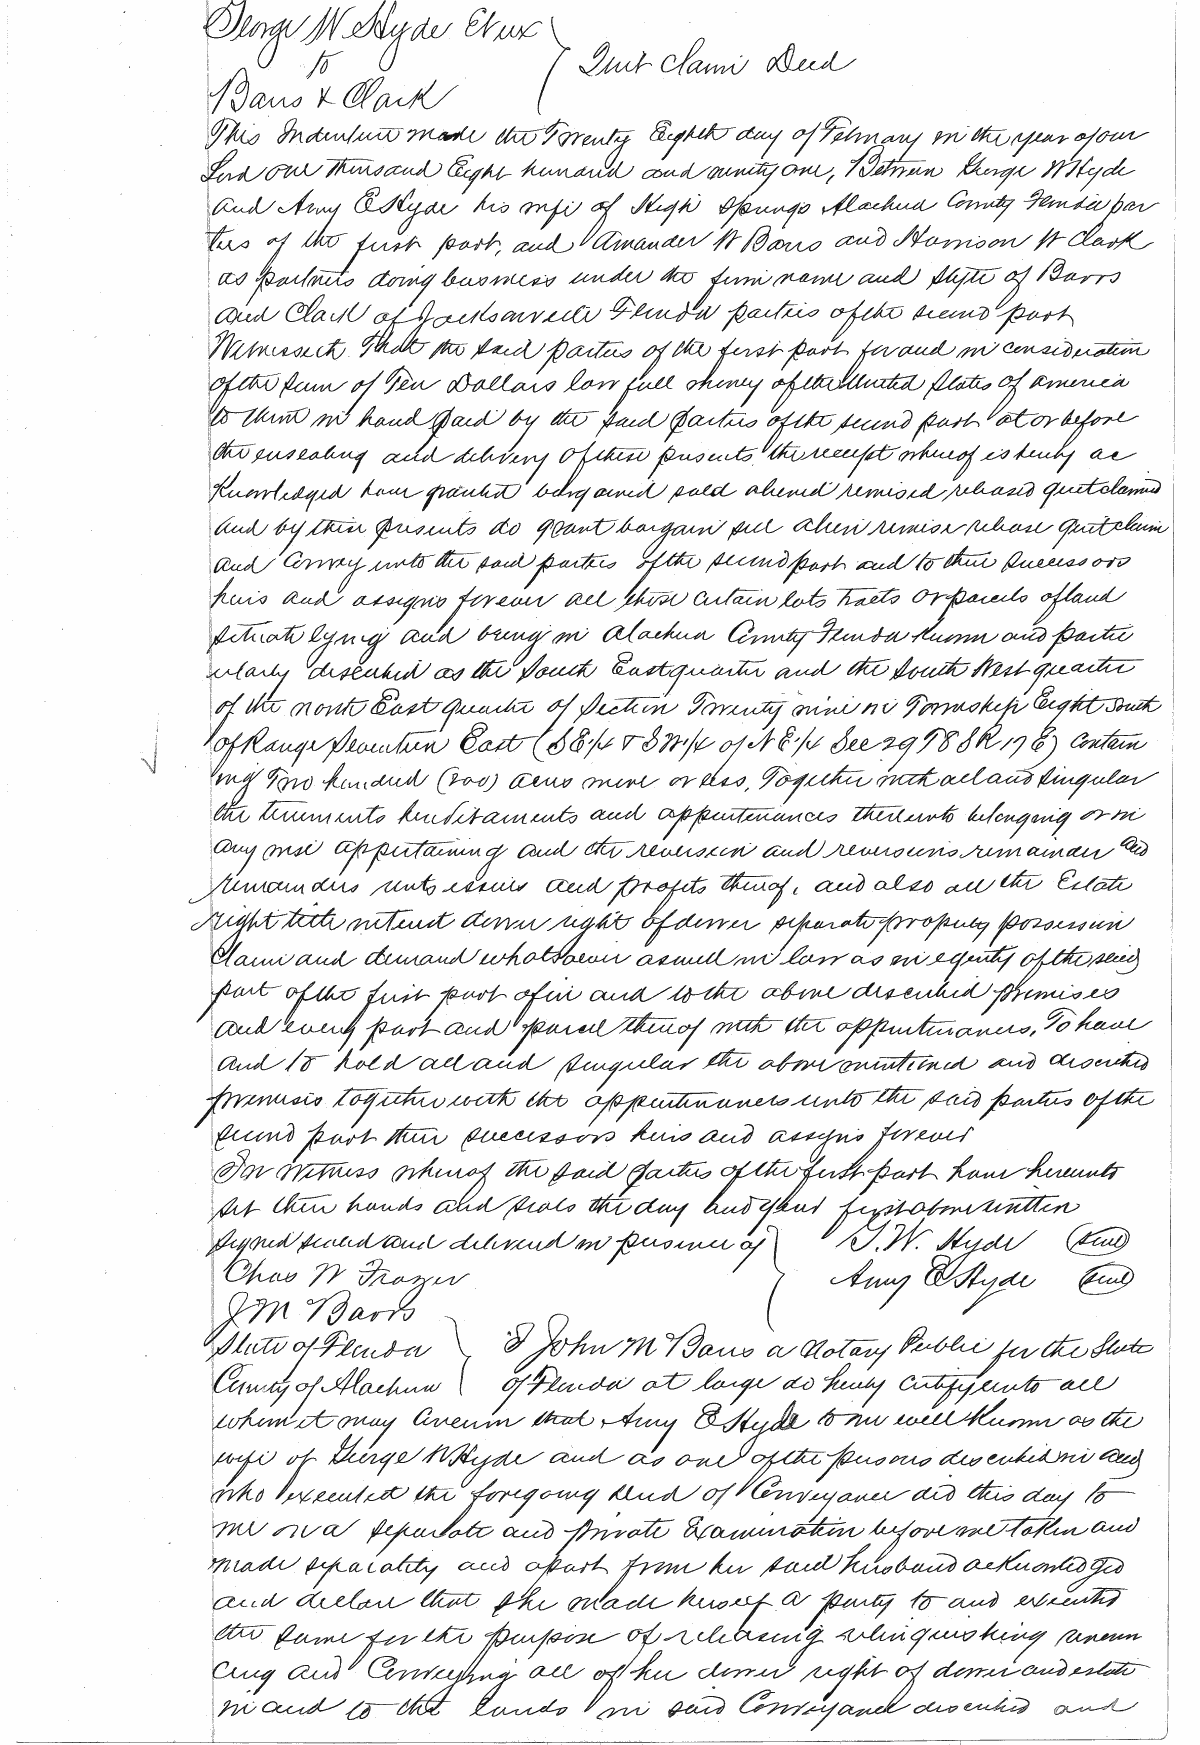 George W Hyde Et ux
to
Barrs & Clark
Quit Claim Deed
This Indenture made the Twenty Eighth day of February in the year of our
Lord one thousand Eight hundred and ninety one, Between George W Hyde
and Amy E Hyde his wife of High Springs Alachua County Florida par
ties of the first part, and Amander W Barrs and Harrison W Clark
as partners doing business under the firm name and style of Barrs
and Clark of Jacksonville Florida parties of the second part
Witnesseth That the said parties of the first part for and in consideration
of the sum of Ten Dollars law full money of the United States of america
to them in hand paid by the said parties of the second part at or before
the ensealing and delivery of these presents the receipt whereof is hereby ac
Knowledged have granted bargained sold aliened remised released quitclaimed
and by these presents do grant bargain sell alien remise release quitclaim
and Convey unto the said parties of the second part and to their successors
heirs and assigns forever all those certain lots tracts or parcels of land
situate lying and being in Alachua County Florida Known and partic
ularly described as the South East quarter and the South West quarter
of the north East quarter of Section Twenty nine in Township Eight South
of Range Seventeen East (S E 1/4 & S W 1/4 of N E 1/4 Sec 29 T 8 S R 17 E) Contain
ing Two hundred (200) acres more or less, Together with all and singular
the tenements hereditaments and appurtenances thereunto belonging or in
any wise appertaining and the reversion and reversions remainder and
remainders rents issues and profits thereof, and also all the Estate
right title interest dower right of dower separate property possession
Claim and demand whatsoever as well in law as in equity of the said
part of the first part of in and to the above described premises
and every part and parcel thereof with the appurtenances, To have
and to hold all and singular the above mentioned and described
premises together with the appurtenances unto the said parties of the
second part their successors heirs and assigns forever
In Witness whereof the said parties of the first part have hereunto
set their hands and seals the day and year first above written
Signed sealed and delivered in presence of
G. W. Hyde (seal)
Chas W Frazer
Amy E Hyde (seal)
J M Barrs
State of Florida
County of Alachua
I John M Barrs a Notary Public for the State
of Florida at large do hereby certify unto all
whom it may Concern that Amy E Hyde to me well Known as the
wife of George W Hyde and as one of the persons described in and
who executed the foregoing deed of Conveyance did this day to
me on a separate and private Examination before me taken and
made separately and apart from her said husband acknowledged
and declare that she made herself a party to and executed
the same for the purpose of releasing relinquishing renoun
cing and Conveying all of her dower right of dower and estate
in and to the lands in said Conveyance described and